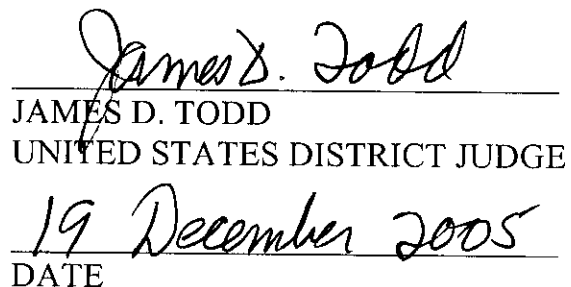 James D. Todd
JAMES D. TODD
UNITED STATES DISTRICT JUDGE
19 December 2005
DATE